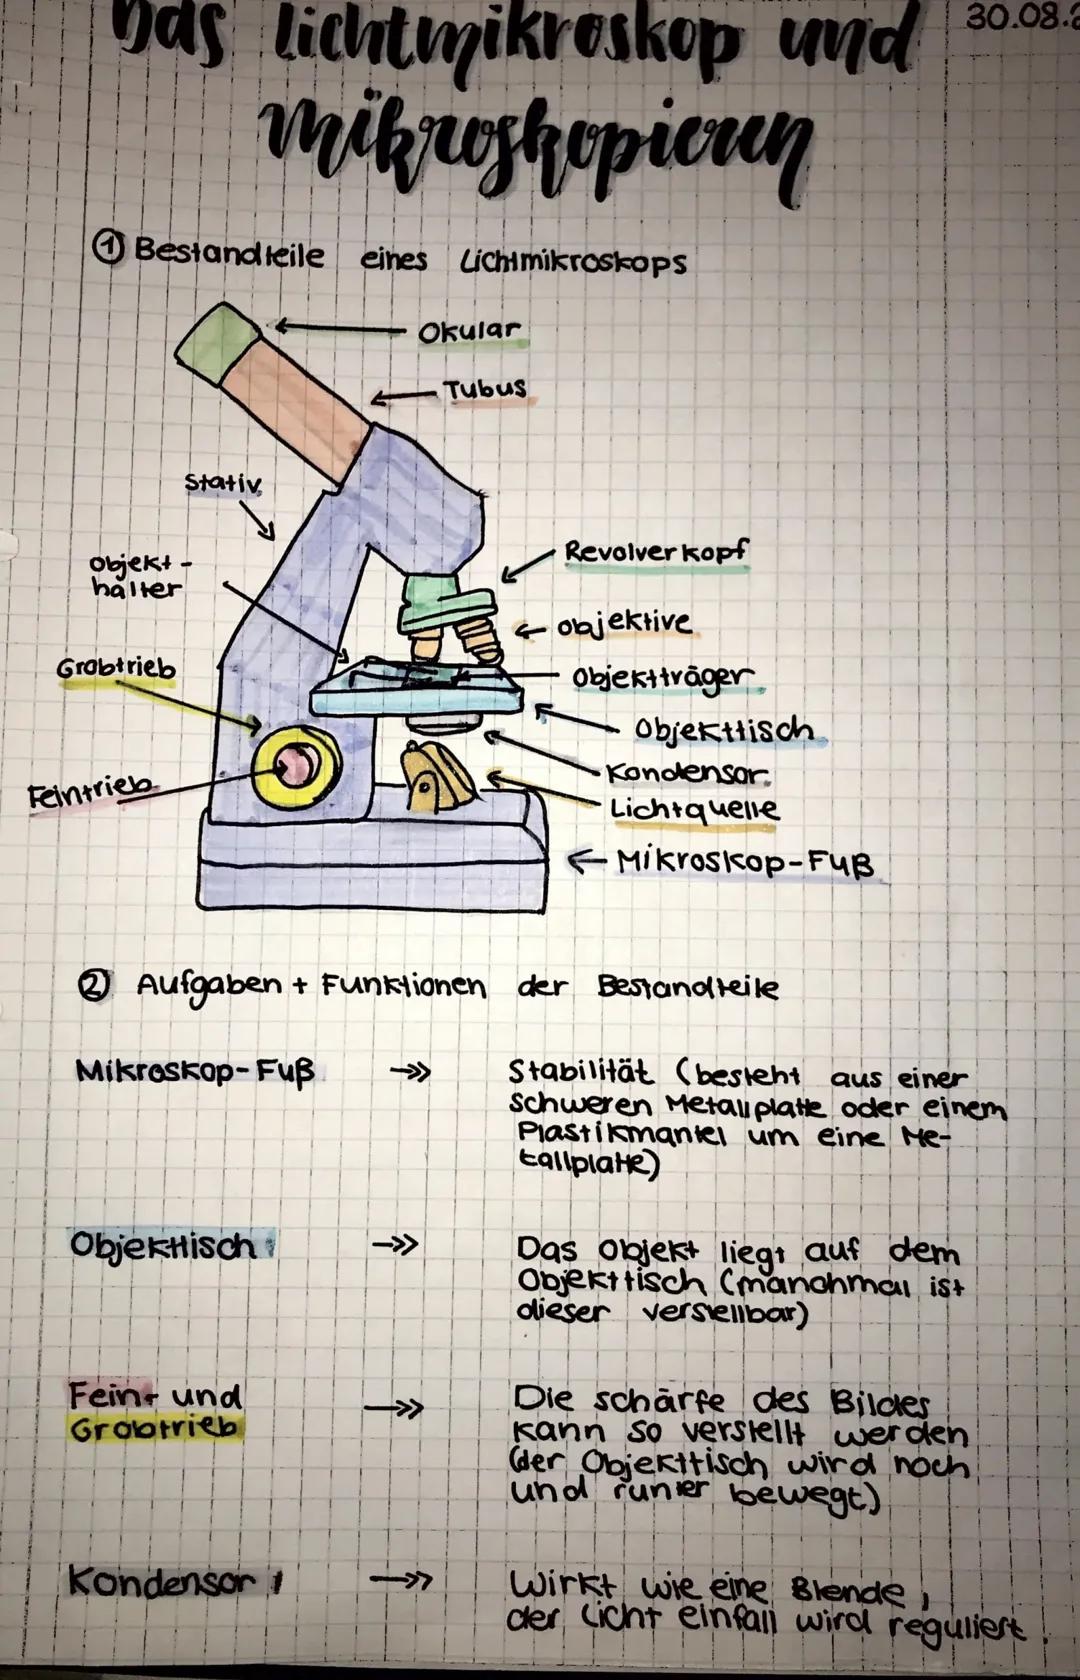 Das Lichtmikroskop und
30.08.2
mikroskopieren
① Bestandteile eines Lichtmikroskops
Okular
Tubus
Stativ
Revolverkopf
Objekt-
halter
Objektive
Grobtrieb
Objektträger
Objekttisch
Kondensor
Feintrieb
Lichtquelle
Mikroskop-Fuß
② Aufgaben + Funktionen der Bestandteile
Mikroskop-Fuß ->> Stabilität (besteht aus einer
schweren Metallplatte oder einem
Plastikmantel um eine Me-
tallplatte)
Objekttisch ->> Das Objekt liegt auf dem
Objekttisch (manchmal ist
dieser verstellbar)
Fein- und
Grobtrieb ->> Die schärfe des Bildes
kann so verstellt werden
(der Objekttisch wird noch
und runter bewegt)
Kondensor ->> Wirkt wie eine Blende,
der Licht einfall wird reguliert.